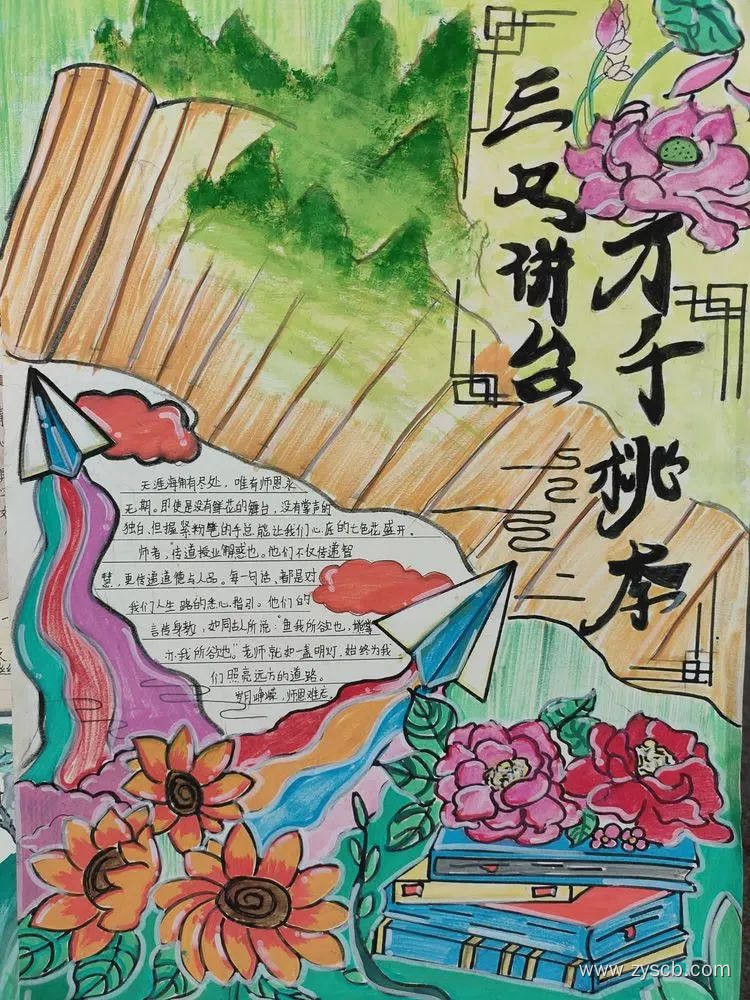 三尺讲台
万千桃李
无涯海角有尽处，唯有师恩永
无期。即使是没有鲜花的舞台，没有掌声的
独白，但握紧粉笔的手总能让我们心底的七色花盛开。
师者，传道授业解惑也。他们不仅传递智
慧，更传递道德与人品。每一句话，都是对
我们人生路的悉心指引。他们的
言传身教，如同古人所说："鱼我所欲也，熊掌
亦我所欲也。"老师就如一盏明灯，始终为我
们照亮远方的道路。
岁月峥嵘，师恩难忘
www.zyscb.com